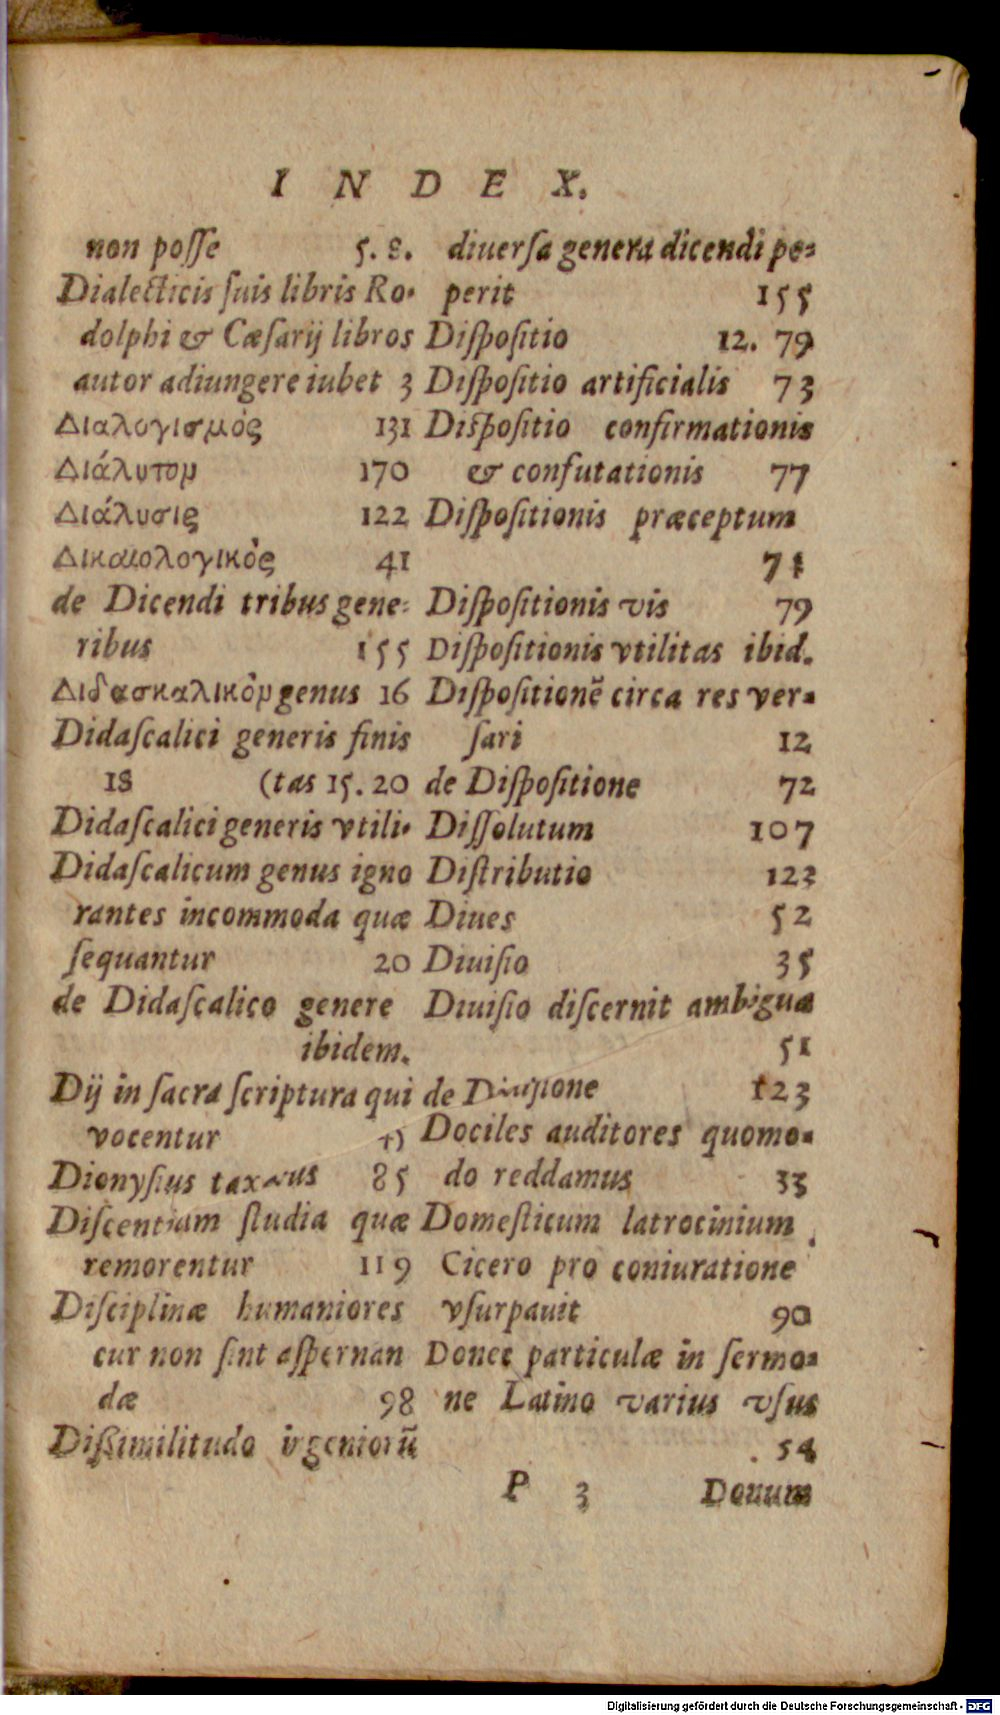 INDEX.
non posse 5. 8.
Dialecticis suis libris Ro-
dolphi & Cæsarij libros
autor adiungere iubet 3
Διαλογισμός 131
Διάλυτον 170
Διάλυσις 122
Δικαιολογικός 41
de Dicendi tribus gene-
ribus 155
Διδασκαλικὸν genus 16
Didascalici generis finis
18 (tas 15. 20
Didascalici generis vtili-
Didascalicum genus igno
rantes incommoda quæ
sequantur 20
de Didascalico genere
ibidem.
Dij in sacra scriptura qui
vocentur
Dionysius 85
Discentium studia quæ
remorentur 119
Disciplinæ humaniores
cur non sint aspernan
dæ 98
Dissimilitudo ingeniorũ
diuersa genera dicendi pe-
perit 155
Dispositio 12. 79
Dispositio artificialis 73
Dispositio confirmationis
& confutationis 77
Dispositionis præceptum
71
Dispositionis vis 79
Dispositionis vtilitas ibid.
Dispositionẽ circa res ver-
sari 12
de Dispositione 72
Dissolutum 107
Distributio 123
Diues 52
Diuisio 35
Diuisio discernit ambigua
51
de Diuisione 123
Dociles auditores quomo-
do reddamus 33
Domesticum latrocinium
Cicero pro coniuratione
vsurpauit 90
Donec particulæ in sermo-
ne Latino varius vsus
54
P 3 Donum
Digitalisierung gefördert durch die Deutsche Forschungsgemeinschaft - DFG